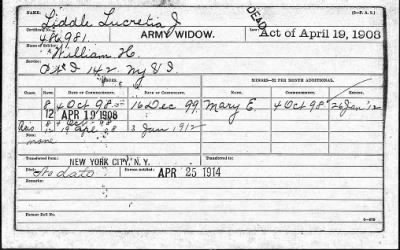 NAME: Liddle Lucretia J (3-P. A. S.)
Certificate No.
486981. ARMY WIDOW. DEAD Act of April 19, 1908
Name of Soldier:
William H.
142 NY V I
RATES. MINORS—$2 PER MONTH ADDITIONAL.
CLASS. RATE. DATE OF COMMENCEMENT. DATE OF COMMENCEMENT.
8 4 Oct 98 16 Dec 99 Mary E. 4 Oct 98 26 Jan '12
12 APR 19 1908
8 4 Oct 98
12 19 Apr 08 3 Jan 1912
none
Transferred from NEW YORK CITY, N. Y.
Died No date Bureau notified: APR 25 1914
Remarks:
Transferred to
Remarks:
Former Roll No.